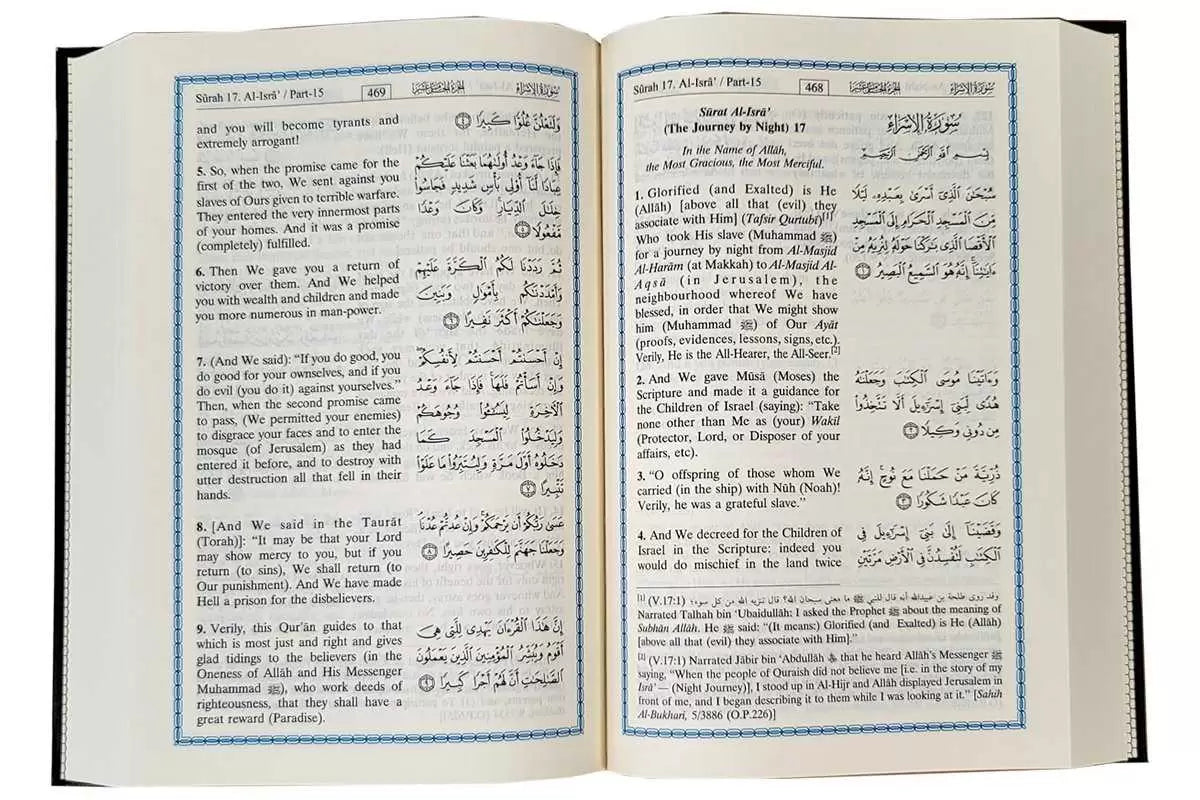 Sûrah 17. Al-Isrâ’ / Part-15
468
الجزء الخامس عشر
سورة الإسراء
Sûrat Al-Isrâ’
(The Journey by Night) 17
In the Name of Allâh,
the Most Gracious, the Most Merciful.
1. Glorified (and Exalted) is He
(Allâh) [above all that (evil) they
associate with Him] (Tafsir Qurtubî)[1]
Who took His slave (Muhammad ﷺ)
for a journey by night from Al-Masjid
Al-Harâm (at Makkah) to Al-Masjid Al-
Aqsâ (in Jerusalem), the
neighbourhood whereof We have
blessed, in order that We might show
him (Muhammad ﷺ) of Our Ayât
(proofs, evidences, lessons, signs, etc.).
Verily, He is the All-Hearer, the All-Seer.[2]
2. And We gave Mûsâ (Moses) the
Scripture and made it a guidance for
the Children of Israel (saying): “Take
none other than Me as (your) Wakîl
(Protector, Lord, or Disposer of your
affairs, etc).
3. “O offspring of those whom We
carried (in the ship) with Nûh (Noah)!
Verily, he was a grateful slave.”
4. And We decreed for the Children of
Israel in the Scripture: indeed you
would do mischief in the land twice
سورة الإسراء
بِسْمِ اللَّهِ الرَّحْمَٰنِ الرَّحِيمِ
سُبْحَٰنَ ٱلَّذِىٓ أَسْرَىٰ بِعَبْدِهِۦ لَيْلًا
مِّنَ ٱلْمَسْجِدِ ٱلْحَرَامِ إِلَى ٱلْمَسْجِدِ
ٱلْأَقْصَا ٱلَّذِى بَٰرَكْنَا حَوْلَهُۥ لِنُرِيَهُۥ مِنْ
ءَايَٰتِنَآ إِنَّهُۥ هُوَ ٱلسَّمِيعُ ٱلْبَصِيرُ ١
وَءَاتَيْنَا مُوسَى ٱلْكِتَٰبَ وَجَعَلْنَٰهُ
هُدًى لِّبَنِىٓ إِسْرَٰٓءِيلَ أَلَّا تَتَّخِذُوا۟
مِن دُونِى وَكِيلًا ٢
ذُرِّيَّةَ مَنْ حَمَلْنَا مَعَ نُوحٍ إِنَّهُۥ
كَانَ عَبْدًا شَكُورًا ٣
وَقَضَيْنَآ إِلَىٰ بَنِىٓ إِسْرَٰٓءِيلَ فِى
ٱلْكِتَٰبِ لَتُفْسِدُنَّ فِى ٱلْأَرْضِ مَرَّتَيْنِ
[1] (V.17:1) وقد روى طلحة بن عبيدالله أنه قال للنبي ﷺ ما معنى سبحان الله؟ قال تنزيه الله من كل سوء؛
Narrated Talhah bin ‘Ubaidullâh: I asked the Prophet ﷺ about the meaning of
Subhân Allâh. He ﷺ said: “(It means:) Glorified (and Exalted) is He (Allâh)
[above all that (evil) they associate with Him].”
[2] (V.17:1) Narrated Jâbir bin ‘Abdullâh that he heard Allâh’s Messenger ﷺ
saying, “When the people of Quraish did not believe me [i.e. in the story of my
Isrâ’ — (Night Journey)], I stood up in Al-Hijr and Allâh displayed Jerusalem in
front of me, and I began describing it to them while I was looking at it.” [Sahih
Al-Bukhari, 5/3886 (O.P.226)]
Sûrah 17. Al-Isrâ’ / Part-15
469
الجزء الخامس عشر
سورة الإسراء
and you will become tyrants and
extremely arrogant!
5. So, when the promise came for the
first of the two, We sent against you
slaves of Ours given to terrible warfare.
They entered the very innermost parts
of your homes. And it was a promise
(completely) fulfilled.
6. Then We gave you a return of
victory over them. And We helped
you with wealth and children and made
you more numerous in man-power.
7. (And We said): “If you do good, you
do good for your ownselves, and if you
do evil (you do it) against yourselves.”
Then, when the second promise came
to pass, (We permitted your enemies)
to disgrace your faces and to enter the
mosque (of Jerusalem) as they had
entered it before, and to destroy with
utter destruction all that fell in their
hands.
8. [And We said in the Taurât
(Torah)]: “It may be that your Lord
may show mercy to you, but if you
return (to sins), We shall return (to
Our punishment). And We have made
Hell a prison for the disbelievers.
9. Verily, this Qur’ân guides to that
which is most just and right and gives
glad tidings to the believers (in the
Oneness of Allâh and His Messenger
Muhammad ﷺ), who work deeds of
righteousness, that they shall have a
great reward (Paradise).
وَلَتَعْلُنَّ عُلُوًّا كَبِيرًا ٤
فَإِذَا جَآءَ وَعْدُ أُولَىٰهُمَا بَعَثْنَا عَلَيْكُمْ
عِبَادًا لَّنَآ أُو۟لِى بَأْسٍ شَدِيدٍ فَجَاسُوا۟
خِلَٰلَ ٱلدِّيَارِ وَكَانَ وَعْدًا
مَّفْعُولًا ٥
ثُمَّ رَدَدْنَا لَكُمُ ٱلْكَرَّةَ عَلَيْهِمْ
وَأَمْدَدْنَٰكُم بِأَمْوَٰلٍ وَبَنِينَ
وَجَعَلْنَٰكُمْ أَكْثَرَ نَفِيرًا ٦
إِنْ أَحْسَنتُمْ أَحْسَنتُمْ لِأَنفُسِكُمْ
وَإِنْ أَسَأْتُمْ فَلَهَا فَإِذَا جَآءَ وَعْدُ
ٱلْءَاخِرَةِ لِيَسُۥٓـُٔوا۟ وُجُوهَكُمْ
وَلِيَدْخُلُوا۟ ٱلْمَسْجِدَ كَمَا
دَخَلُوهُ أَوَّلَ مَرَّةٍ وَلِيُتَبِّرُوا۟ مَا عَلَوْا۟
تَتْبِيرًا ٧
عَسَىٰ رَبُّكُمْ أَن يَرْحَمَكُمْ وَإِنْ عُدتُّمْ عُدْنَا
وَجَعَلْنَا جَهَنَّمَ لِلْكَٰفِرِينَ حَصِيرًا ٨
إِنَّ هَٰذَا ٱلْقُرْءَانَ يَهْدِى لِلَّتِى هِىَ
أَقْوَمُ وَيُبَشِّرُ ٱلْمُؤْمِنِينَ ٱلَّذِينَ يَعْمَلُونَ
ٱلصَّٰلِحَٰتِ أَنَّ لَهُمْ أَجْرًا كَبِيرًا ٩